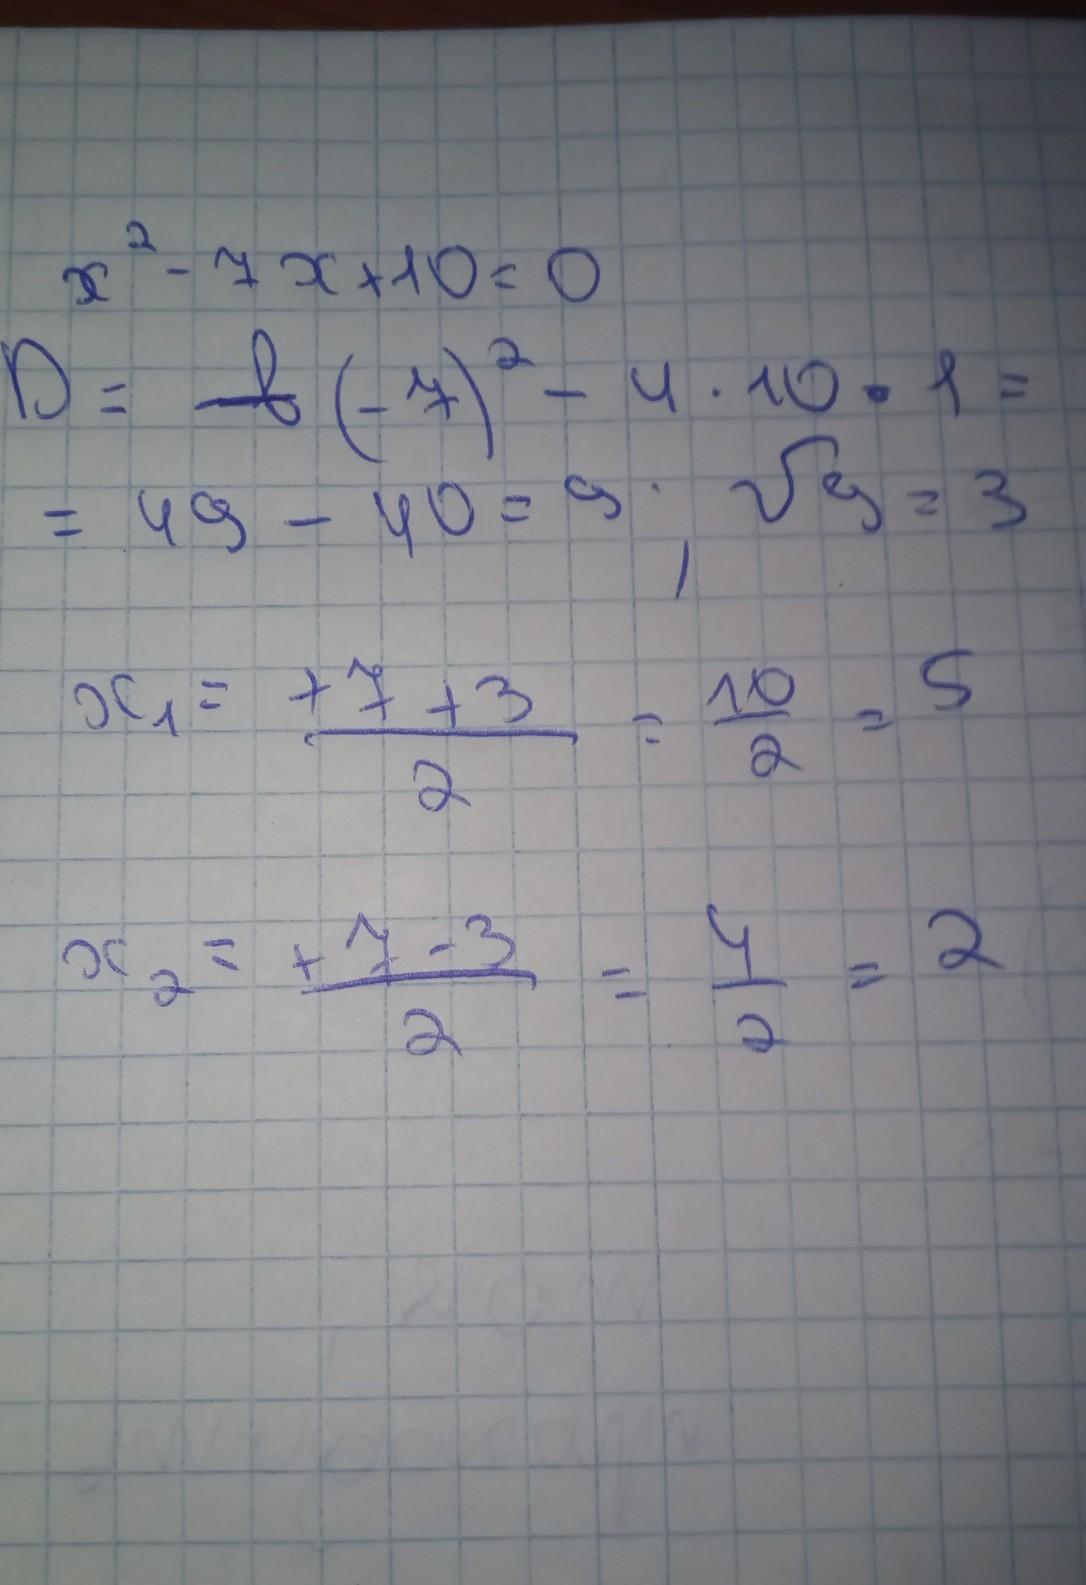 x² - 7x + 10 = 0
D = (-7)² - 4 · 10 · 1 =
= 49 - 40 = 9; √9 = 3
x₁ = +7+3/2 = 10/2 = 5
x₂ = +7-3/2 = 4/2 = 2